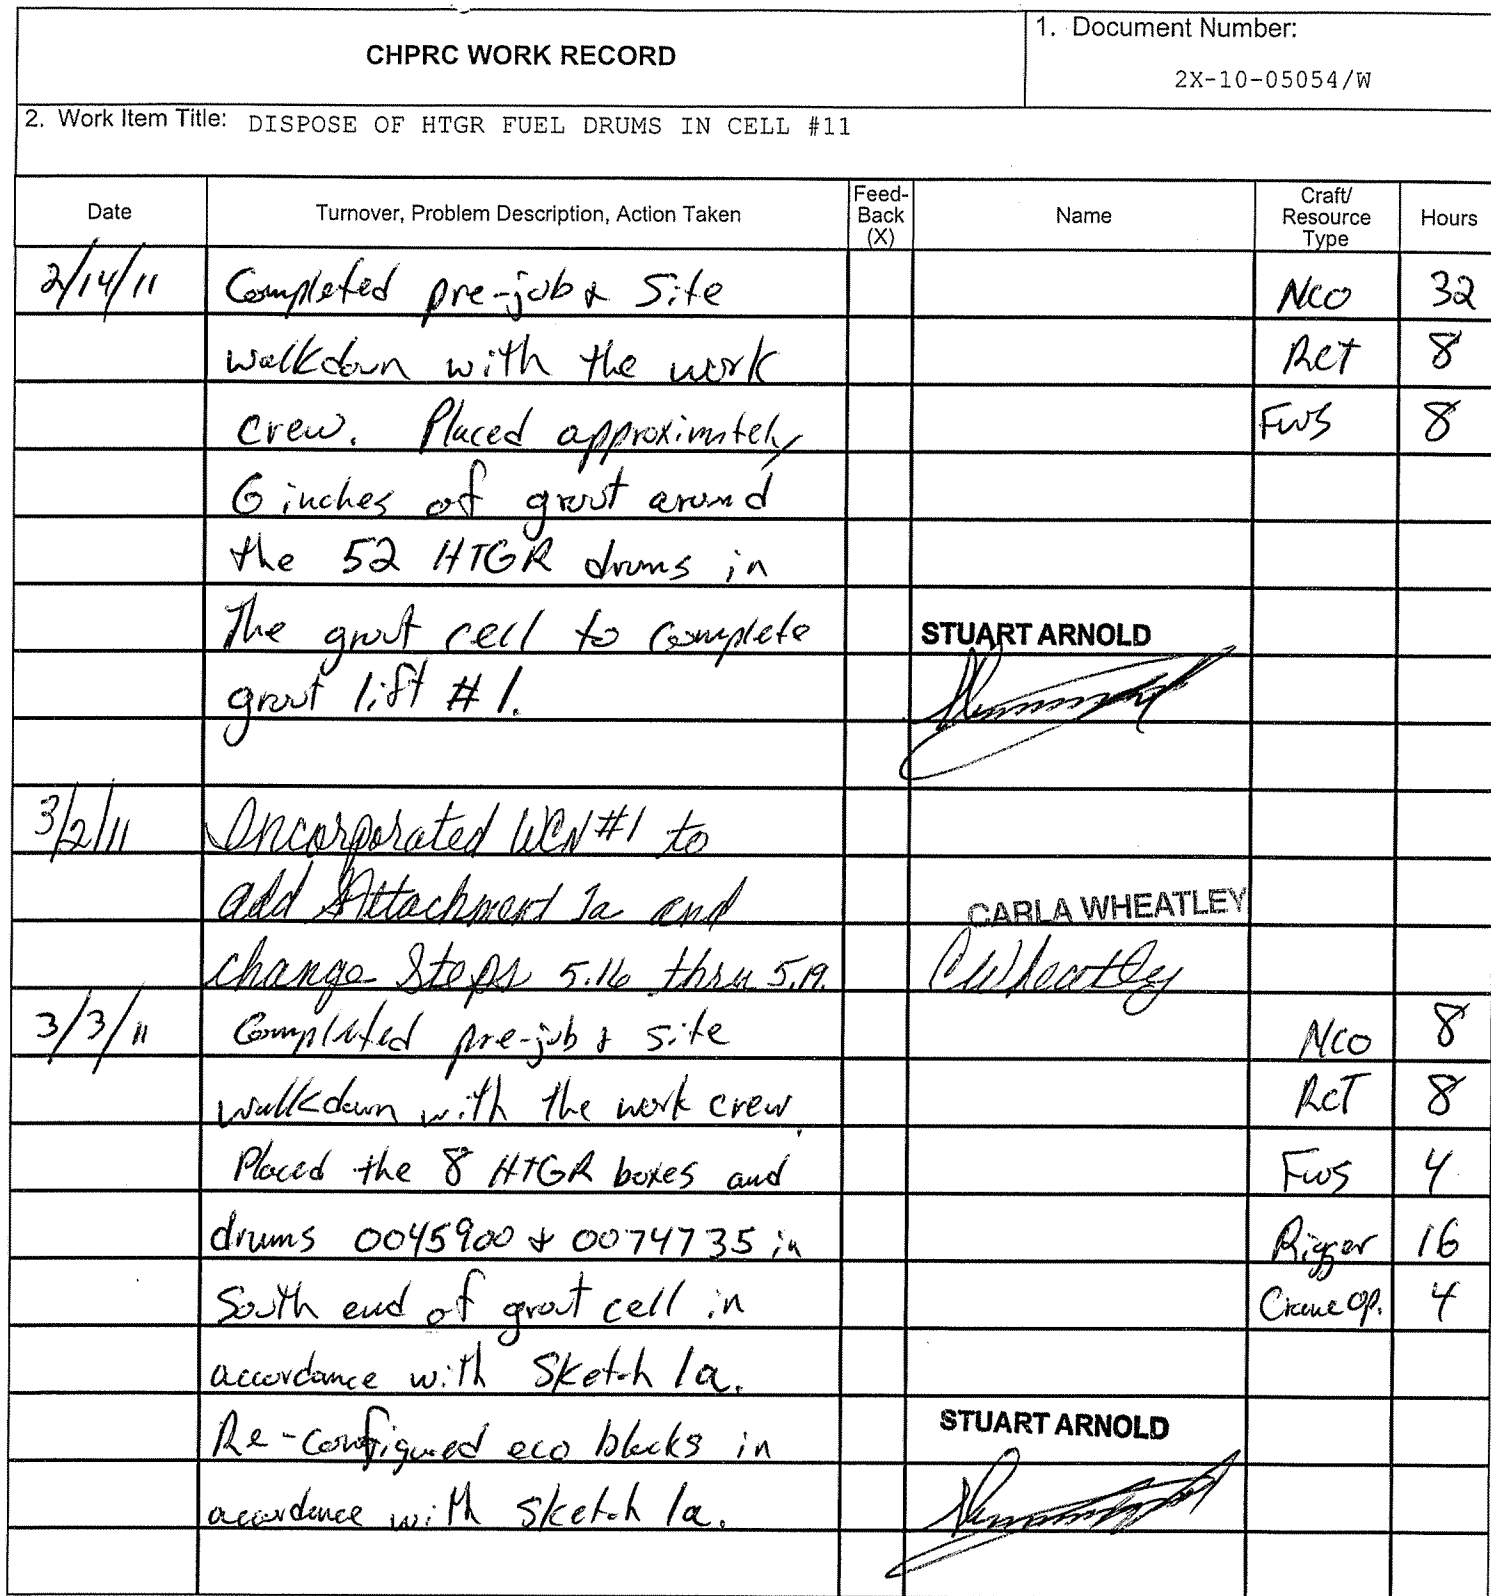 CHPRC WORK RECORD
1. Document Number:
2X-10-05054/W
2. Work Item Title: DISPOSE OF HTGR FUEL DRUMS IN CELL #11
Date Turnover, Problem Description, Action Taken Feed-Back (X) Name Craft/Resource Type Hours
2/14/11 Completed pre-job & Site NCO 32
walkdown with the work RCT 8
crew. Placed approximately FWS 8
6 inches of grout around
the 52 HTGR drums in
The grout cell to complete STUART ARNOLD
grout lift #1.
3/2/11 Incorporated WCN #1 to
add Attachment 1a and CARLA WHEATLEY
change Steps 5.16 thru 5.19. CWheatley
3/3/11 Completed pre-job & site NCO 8
walkdown with the work crew RCT 8
Placed the 8 HTGR boxes and FWS 4
drums 0045900 & 0074735 in Rigger 16
South end of grout cell in Crane Op. 4
accordance with Sketch 1a.
Re-configured eco blocks in STUART ARNOLD
accordance with Sketch 1a.